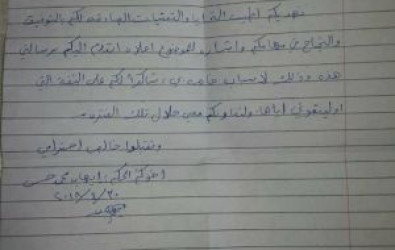 نهديكم أطيب التحايا والتمنيات الصادقة لكم بالتوفيق
والنجاح في مهامكم واشارة للموضوع اعلاه اتقدم اليكم برسالتي
هذه وذلك لاسباب خاصة بي، شاكراً لكم على الثقة التي
اوليتموني اياها ولتعاونكم معي خلال تلك الفترة
وتقبلوا خالص احترامي
اخوكم / ايهاب محمد حسن
٢٠١٨/١/٢٠